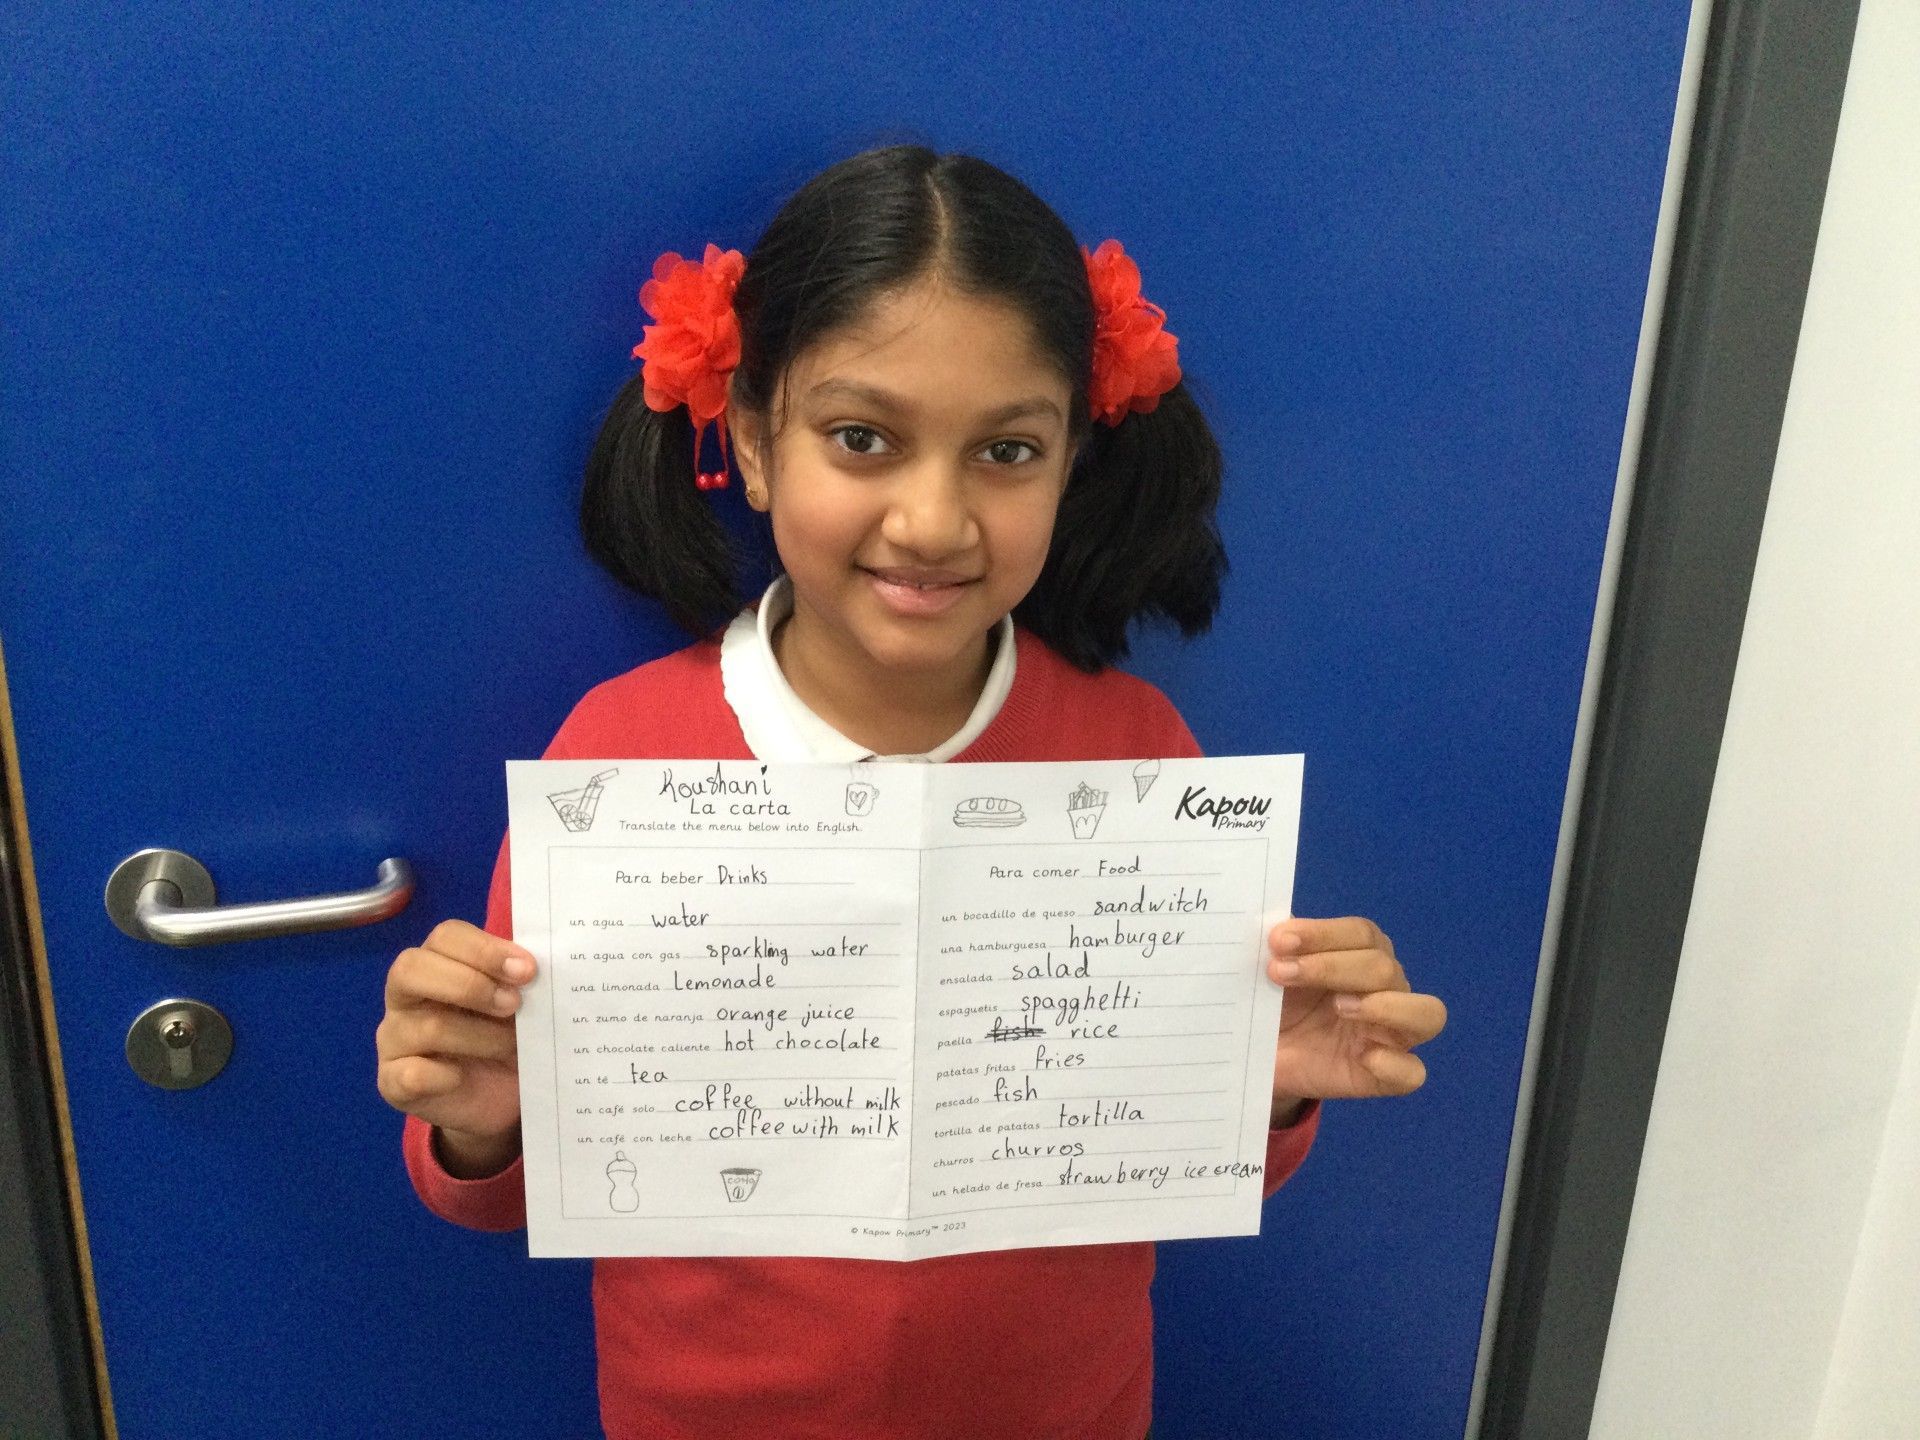 Koushani
La carta
Translate the menu below into English.
Para beber Drinks
un agua water
un agua con gas sparkling water
una limonada Lemonade
un zumo de naranja orange juice
un chocolate caliente hot chocolate
un té tea
un café solo coffee without milk
un café con leche coffee with milk
costa
Kapow
Primary™
Para comer Food
un bocadillo de queso sandwitch
una hamburguesa hamburger
ensalada salad
espaguetis spagghetti
paella fish rice
patatas fritas fries
pescado fish
tortilla de patatas tortilla
churros churros
un helado de fresa strawberry ice cream
© Kapow Primary™ 2023